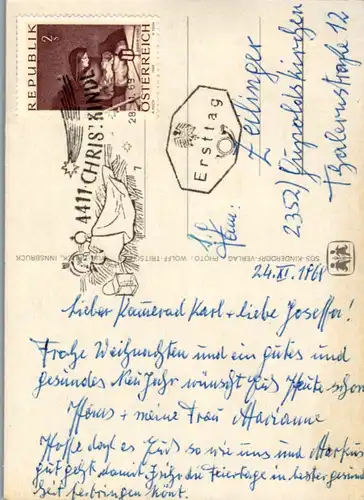 REPUBLIK
ÖSTERREICH
2 S
4411 CHRISTKINDL
28.11.69
Ersttag
Zeilinger
2352 Gumpoldskirchen
Thalernstraße 12
SOS-KINDERDORF-VERLAG · PHOTO: WOLFF-TRITSCHLER · INNSBRUCK
Lieber Kamerad Karl + liebe Josefa!
Frohe Weihnachten und ein gutes und
gesundes Neu Jahr wünscht Euch Heute schon
+ meine Frau Marianne
Hoffe daß es Euch so wie uns und Markus
gut geht damit Ihr die Feiertage in bester
verbringen könnt.